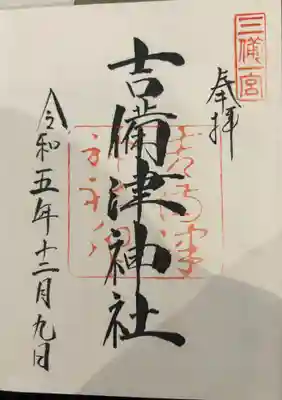 三備一宮
奉拝
吉備津神社
令和五年十二月九日